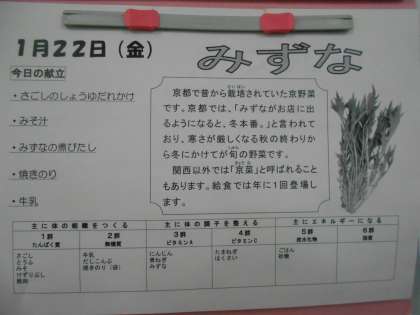 1月22日(金)
みずな
今日の献立
・さごしのしょうゆだれかけ
・みそ汁
・みずなの煮びたし
・焼きのり
・牛乳
京都で昔から栽培されていた京野菜
です。京都では、「みずながお店に出
るようになると、冬本番。」と言われて
おり、寒さが厳しくなる秋の終わりか
ら冬にかけてが旬の野菜です。
関西以外では「京菜」と呼ばれること
もあります。給食では年に1回登場し
ます。
主に体の組織をつくる 主に体の調子を整える 主にエネルギーになる
1群 2群 3群 4群 5群 6群
たんぱく質 無機質 ビタミンA ビタミンC 炭水化物 脂質
さごし 牛乳 にんじん たまねぎ ごはん
とうふ だしこんぶ 青ねぎ はくさい 砂糖
みそ 焼きのり(袋) みずな
けずりぶし